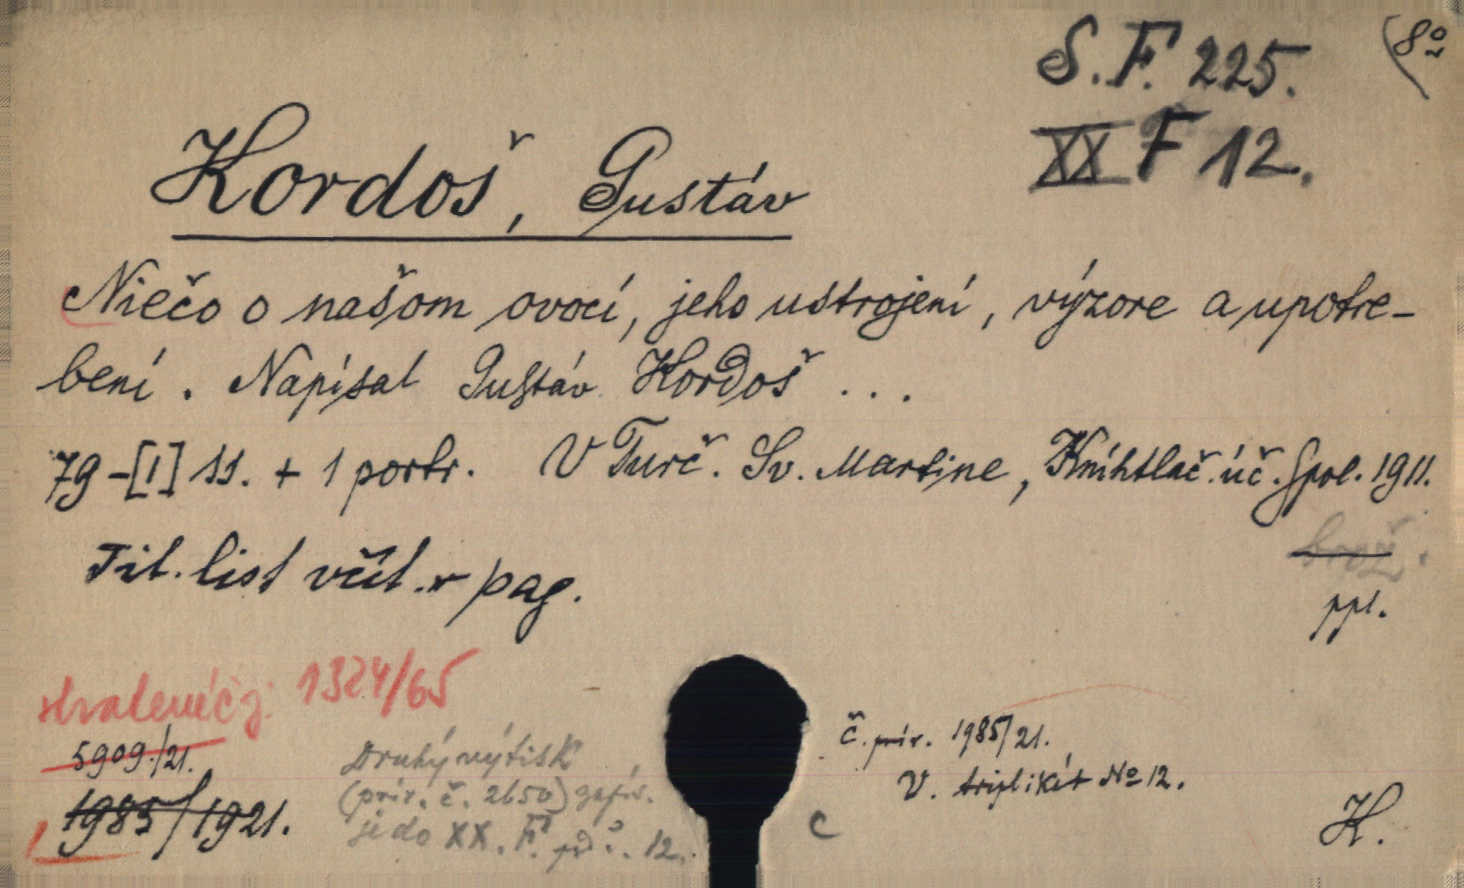 8º
S. F. 225.
XX F 12.
Kordoš, Gustáv
Niečo o našom ovocí, jeho ustrojení, výzore a upotre-
bení. Napísal Gustáv Kordoš ...
79-[1] ss. + 1 portr. V Turč. Sv. Martine, Kníhtlač. úč. spol. 1911.
Tit. list včít. v pag.
brož.
ppl.
1324/65
5909/21.
1985/1921.
Druhý výtisk
(prír. č. 2650) zapís.
je do XX. F. 12.
č. prír. 1985/21.
V. triplikát № 12.
C
K.